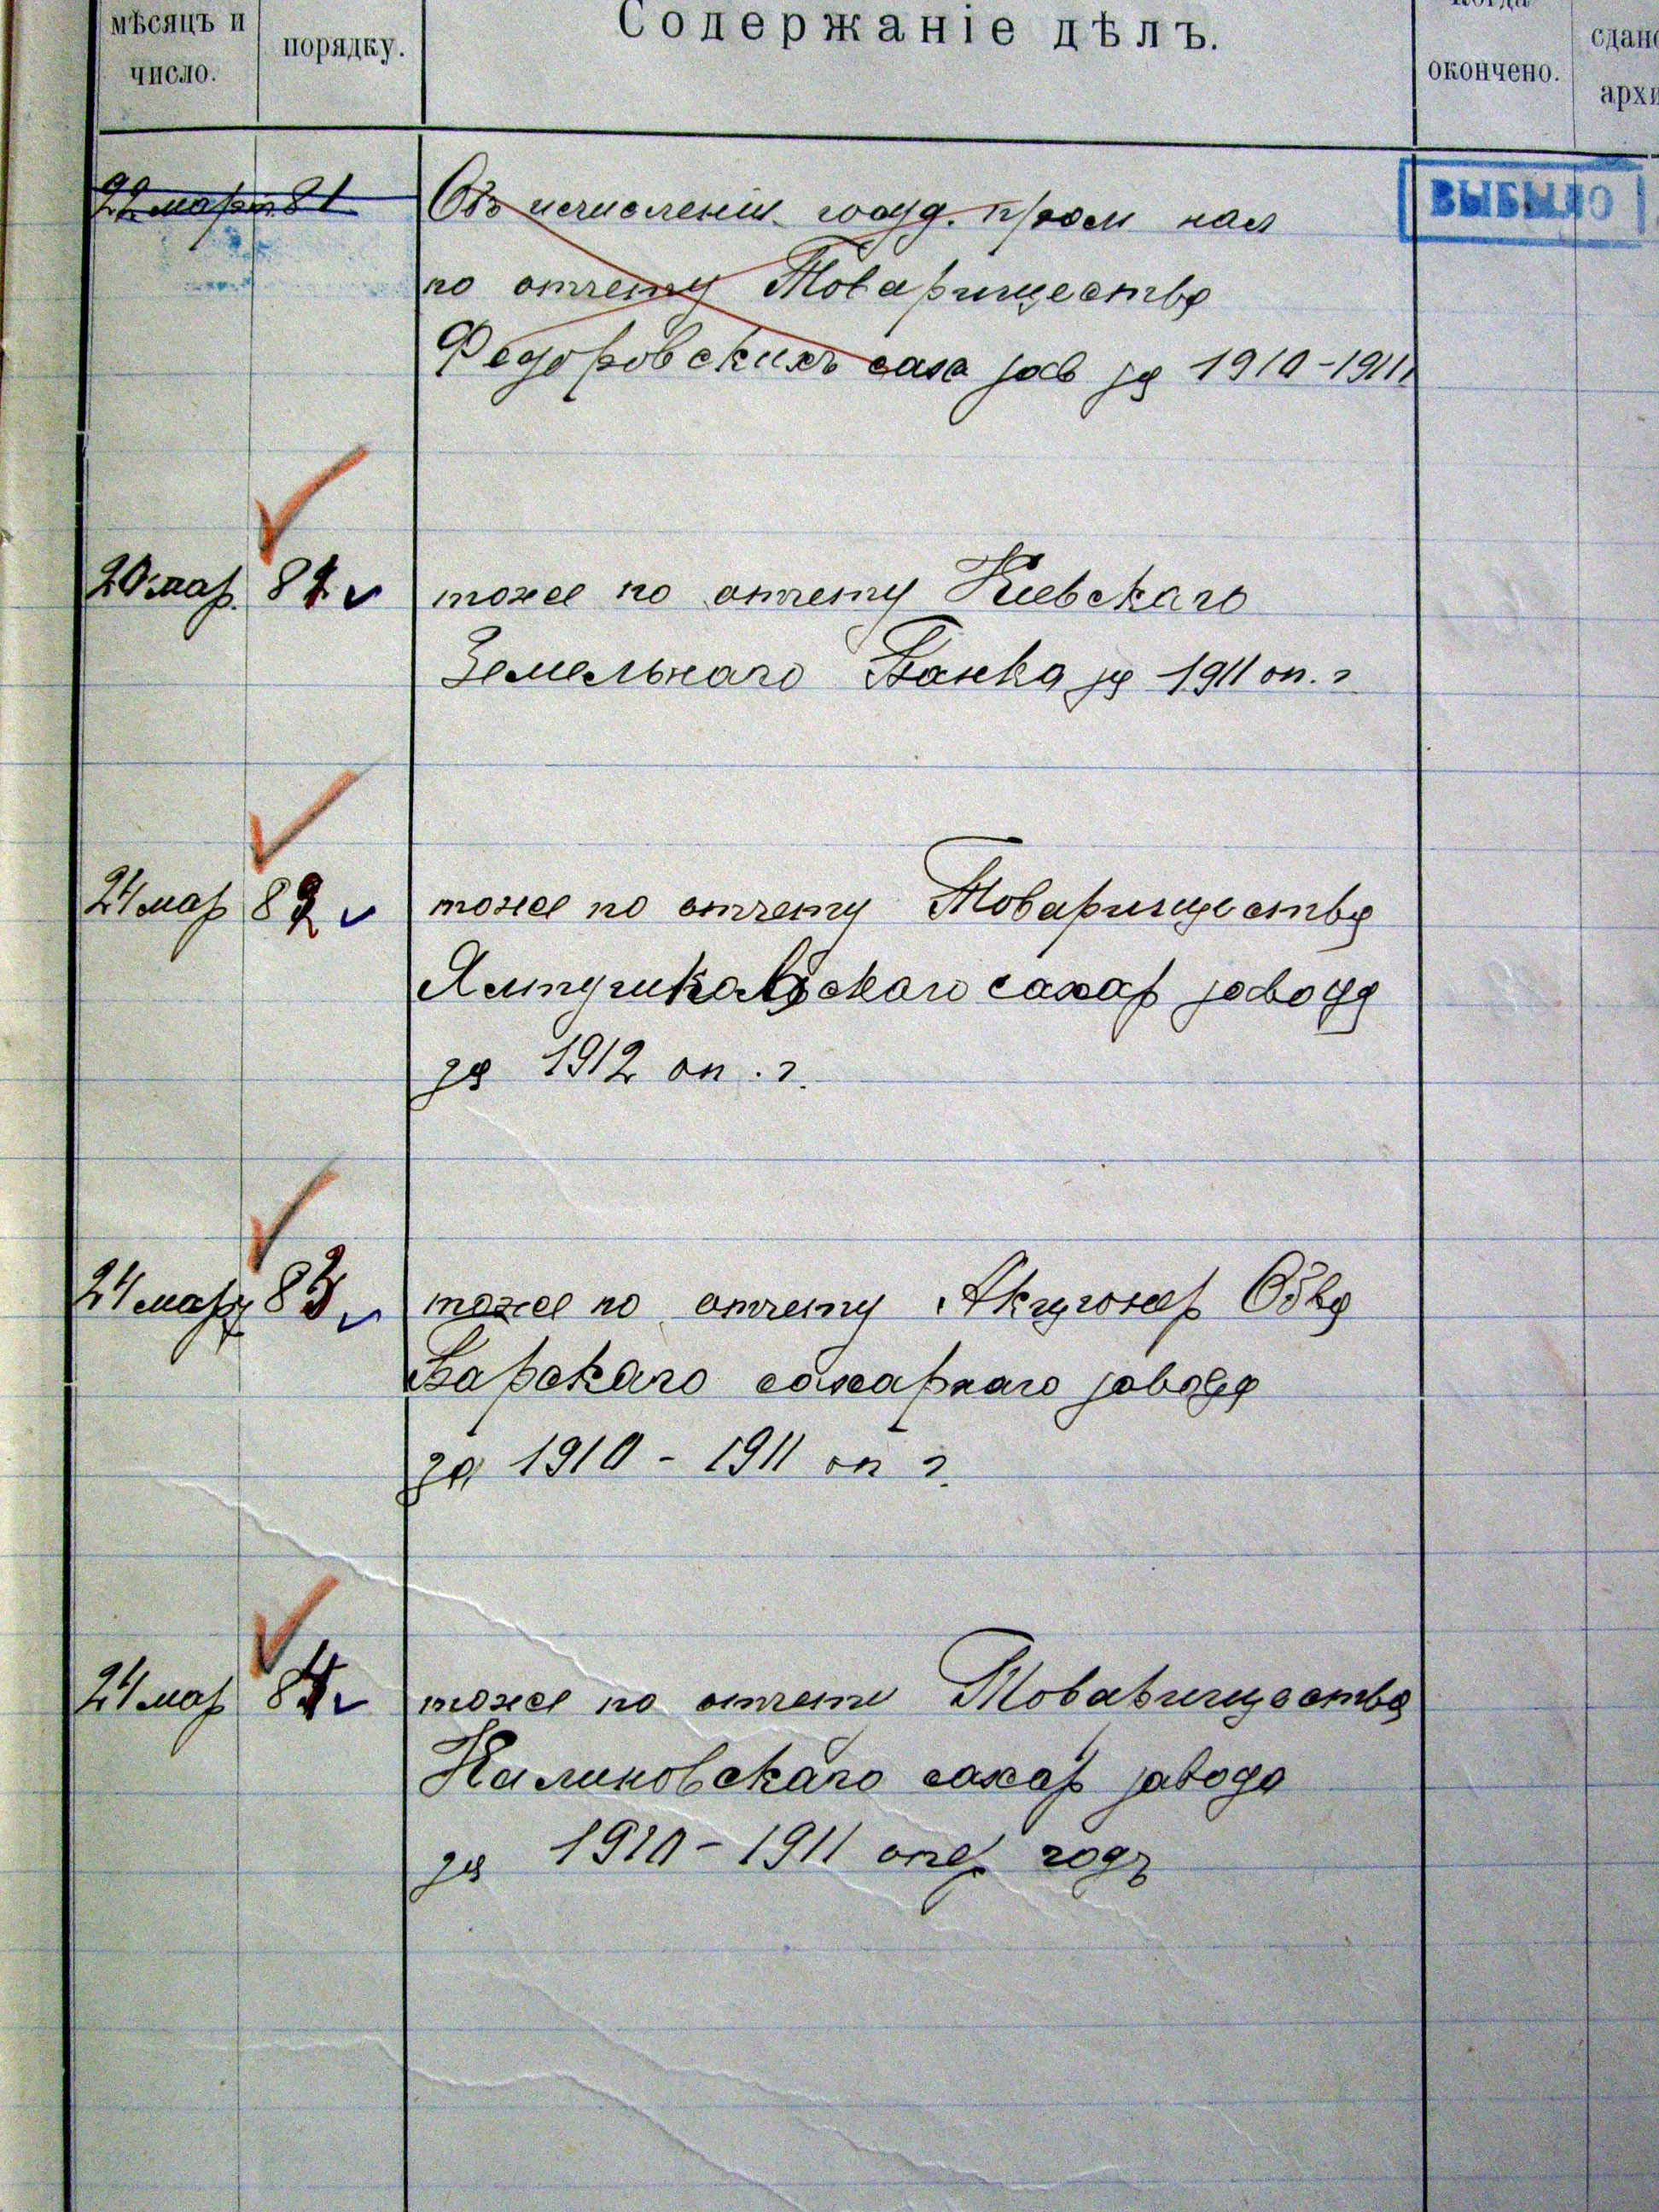 мѣсяцъ и
число.
порядку.
Содержаніе дѣлъ.
когда
окончено.
сдано
архи
22 март 81
Объ исчисленіи госуд. пром нал
по отчету Товарищества
Федоровскихъ саха зав за 1910-1911
ВЫБЫЛО
20 мар. 81
тоже по отчету Киевскаго
Земельнаго Банка за 1911 оп. г
24 мар 82
тоже по отчету Товарищества
Ялтушковскаго сахар завода
за 1912 оп. г.
24 мар 83
тоже по отчету Акционер Обва
Барскаго сахарнаго завода
за 1910 - 1911 оп г.
24 мар 84
тоже по отчету Товарищества
Калиновскаго сахар завода
за 1910-1911 опер годъ